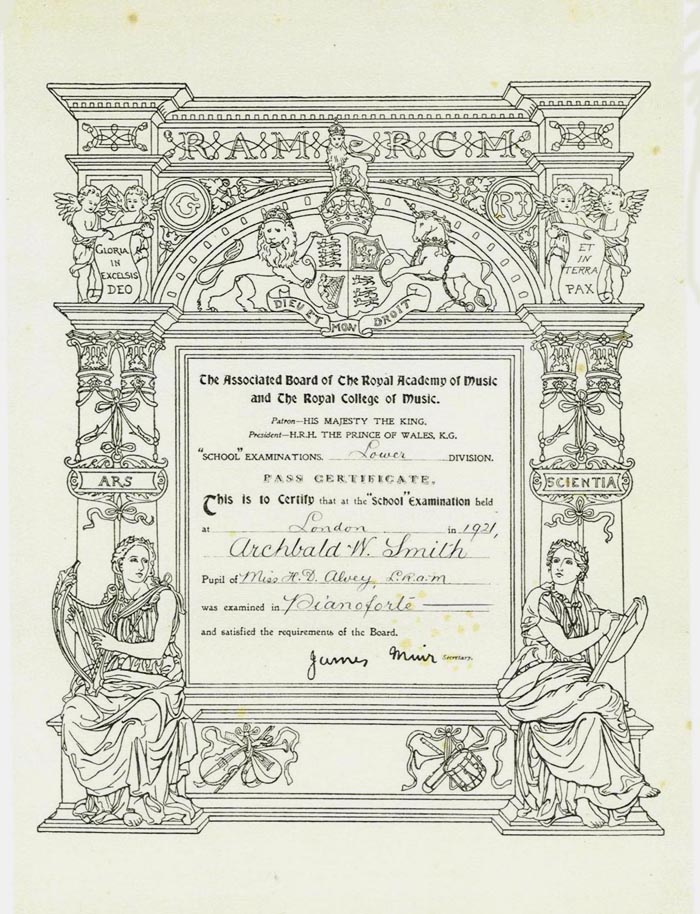 R.A.M. R.C.M.
G RI
GLORIA IN EXCELSIS DEO
ET IN TERRA PAX
DIEU ET MON DROIT
The Associated Board of The Royal Academy of Music
and The Royal College of Music.
Patron—HIS MAJESTY THE KING.
President—H.R.H. THE PRINCE OF WALES, K.G.
"SCHOOL" EXAMINATIONS. Lower DIVISION.
PASS CERTIFICATE.
ARS
SCIENTIA
This is to Certify that at the "School" Examination held
at London in 1921,
Archbald W. Smith
Pupil of Miss H. D. Alvey, L.R.A.M
was examined in Pianoforte
and satisfied the requirements of the Board.
James Muir Secretary.